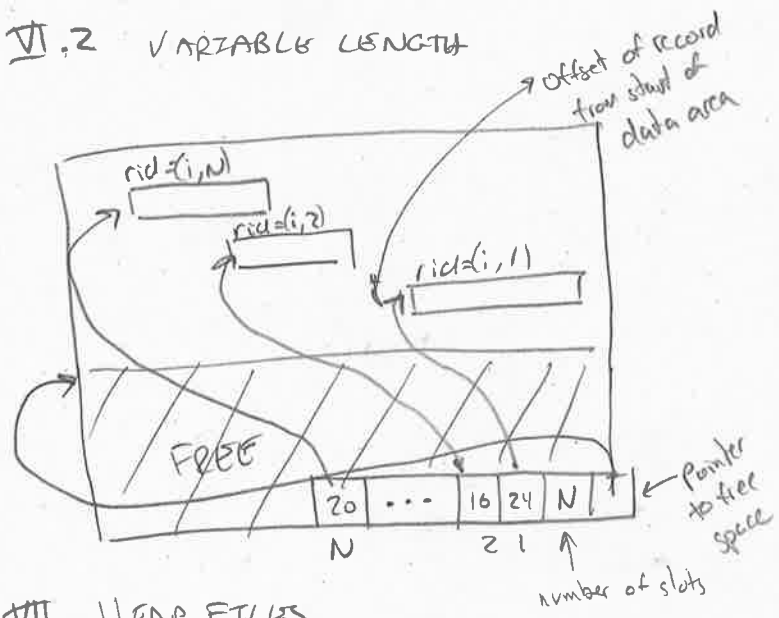 VI.2 VARIABLE LENGTH
offset of record
from start of
data area
rid=(i,N)
rid=(i,2)
rid=(i,1)
FREE
20 ... 16 24 N
N 2 1
pointer
to free
space
number of slots
VII HEAP FILES